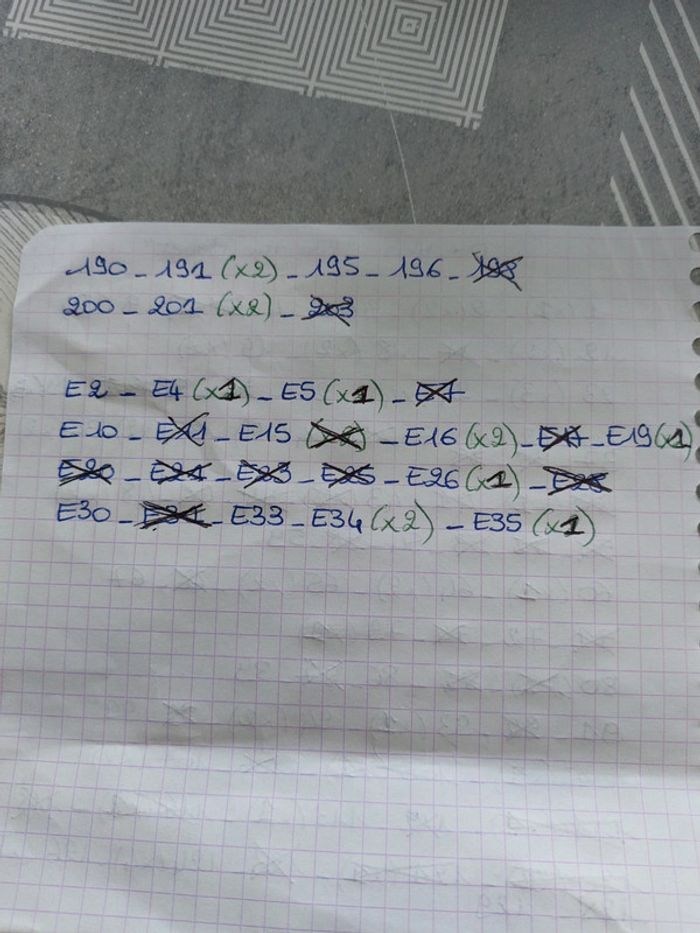 190 - 191 (x2) - 195 - 196 - 198
200 - 201 (x2) - 203
E2 - E4 (x1) - E5 (x1) - E7
E10 - E11 - E15 - E16 (x2) - E17 - E19 (x1)
E20 - E21 - E23 - E25 - E26 (x1) - E28
E30 - E31 - E33 - E34 (x2) - E35 (x1)